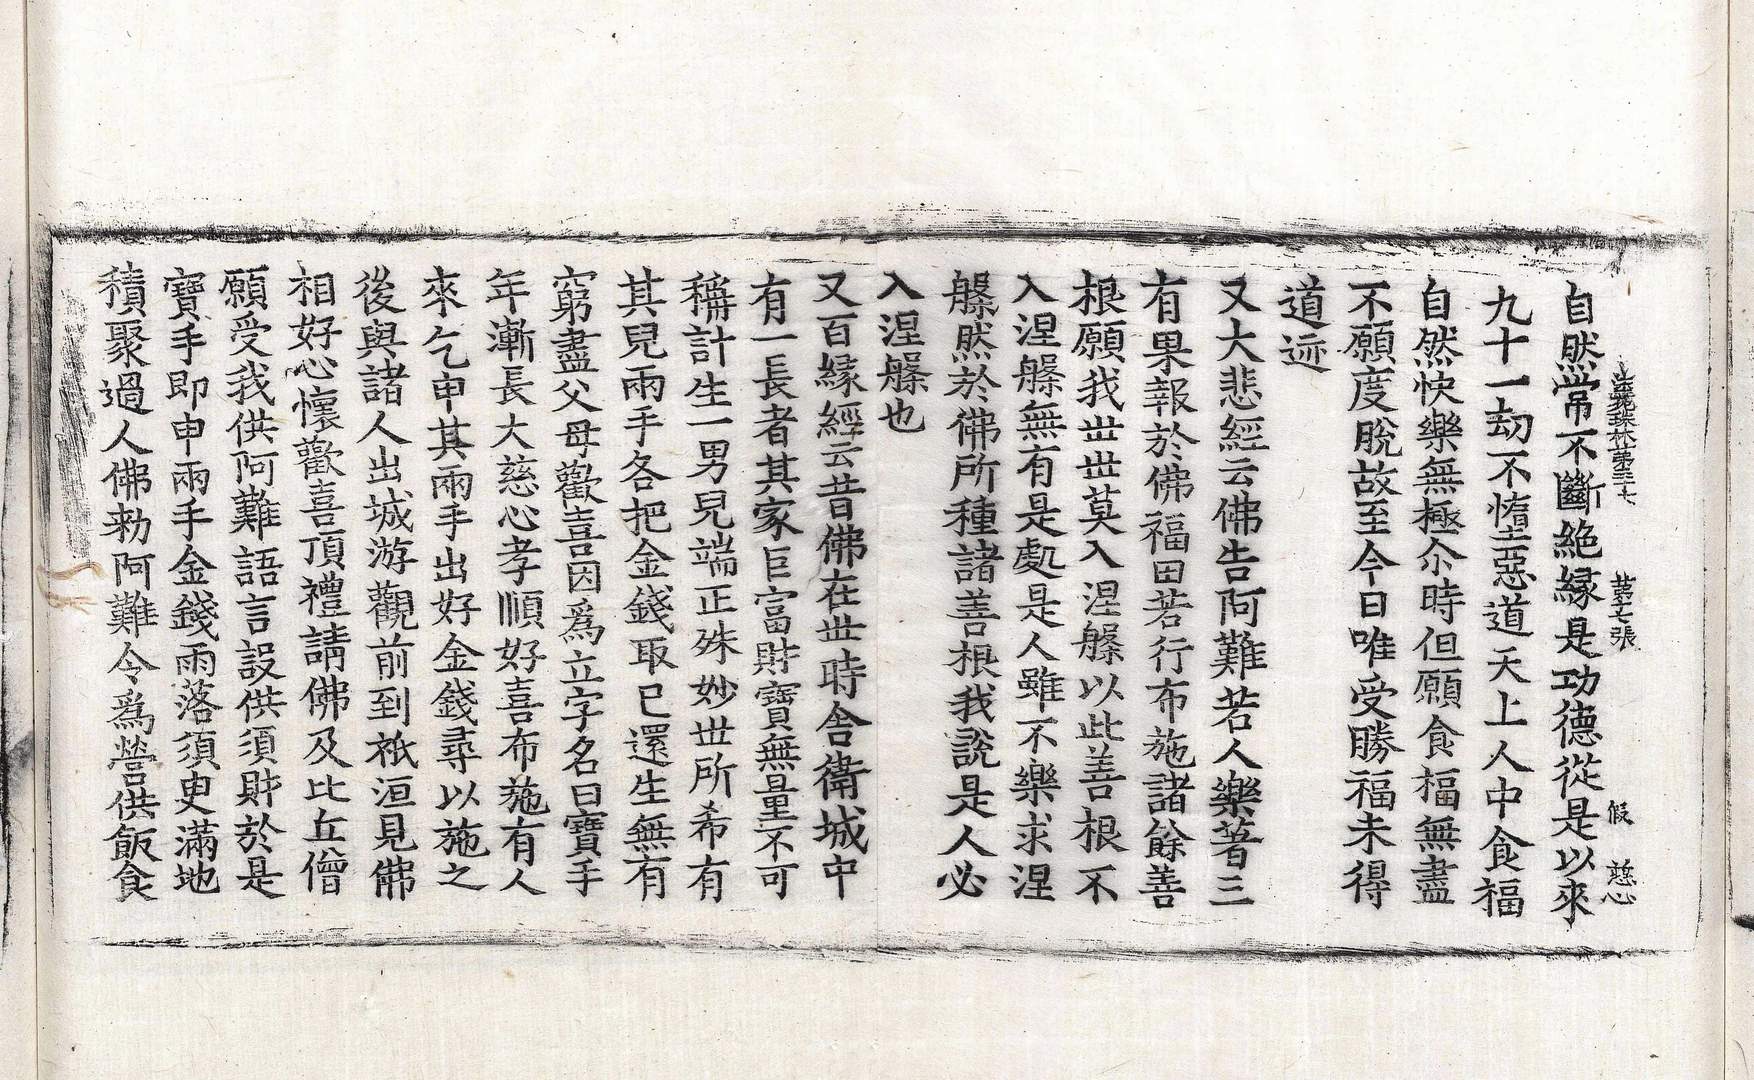 法苑珠林第三十七 第七張 假 慈心
自然常不斷絶緣是功德從是以來
九十一劫不墮惡道天上人中食福
自然快樂無極尒時但願食福無盡
不願度脫故至今日唯受勝福未得
道迹
又大悲經云佛告阿難若人樂著三
有果報於佛福田若行布施諸餘善
根願我世世莫入涅槃以此善根不
入涅槃無有是處是人雖不樂求涅
槃然於佛所種諸善根我說是人必
入涅槃也
又百緣經云昔佛在世時舍衛城中
有一長者其家巨富財寶無量不可
稱計生一男兒端正殊妙世所希有
其兒兩手各把金錢取已還生無有
窮盡父母歡喜因爲立字名曰寶手
年漸長大慈心孝順好喜布施有人
來乞申其兩手出好金錢尋以施之
後與諸人出城游觀前到祇洹見佛
相好心懷歡喜頂禮請佛及比丘僧
願受我供阿難語言設供須財於是
寶手即申兩手金錢雨落須臾滿地
積聚過人佛勑阿難令爲營供飯食